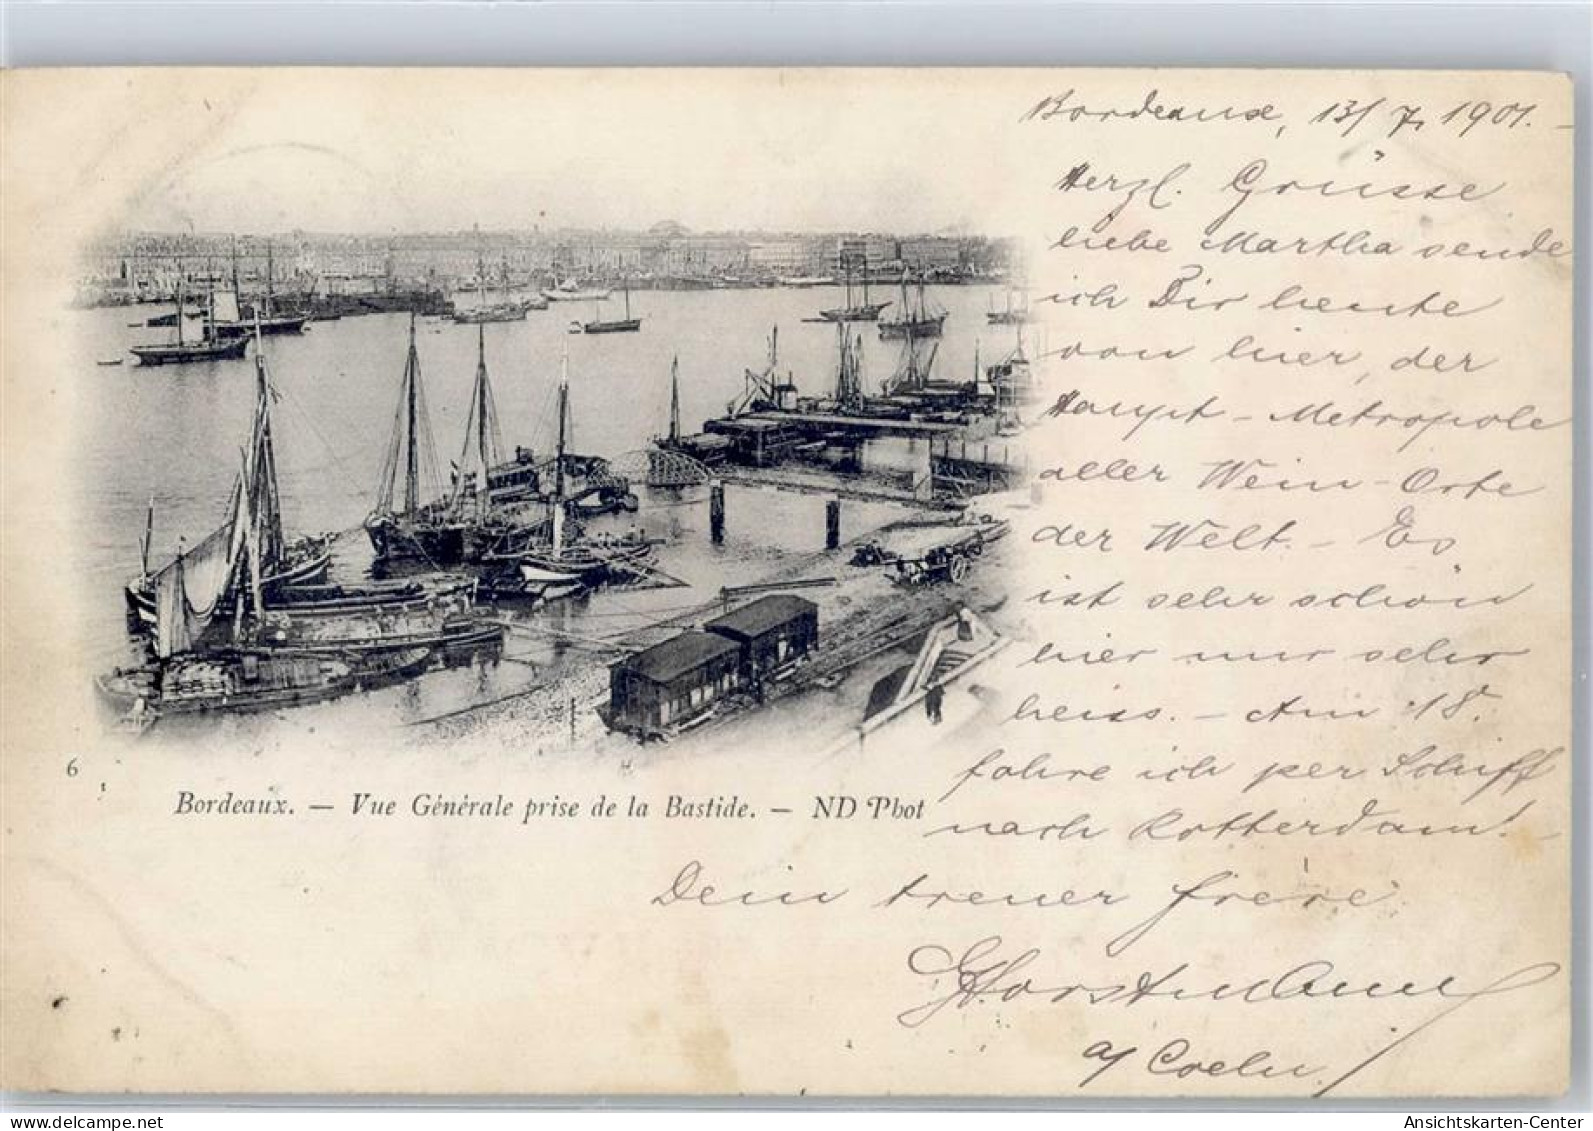 Bordeaux, 13/7, 1901. -
Herzl. Grüsse
liebe Martha sende
ich Dir heute
von hier, der
Haupt - Metropole
aller Wein - Orte
der Welt. - Es
ist sehr schön
hier nur sehr
heiss. - Am 18.
fahre ich per Schiff
nach Rotterdam! -
Dein treuer frère
a/ Coeln.
6
Bordeaux. — Vue Générale prise de la Bastide. — ND Phot
www.delcampe.net
Ansichtskarten-Center